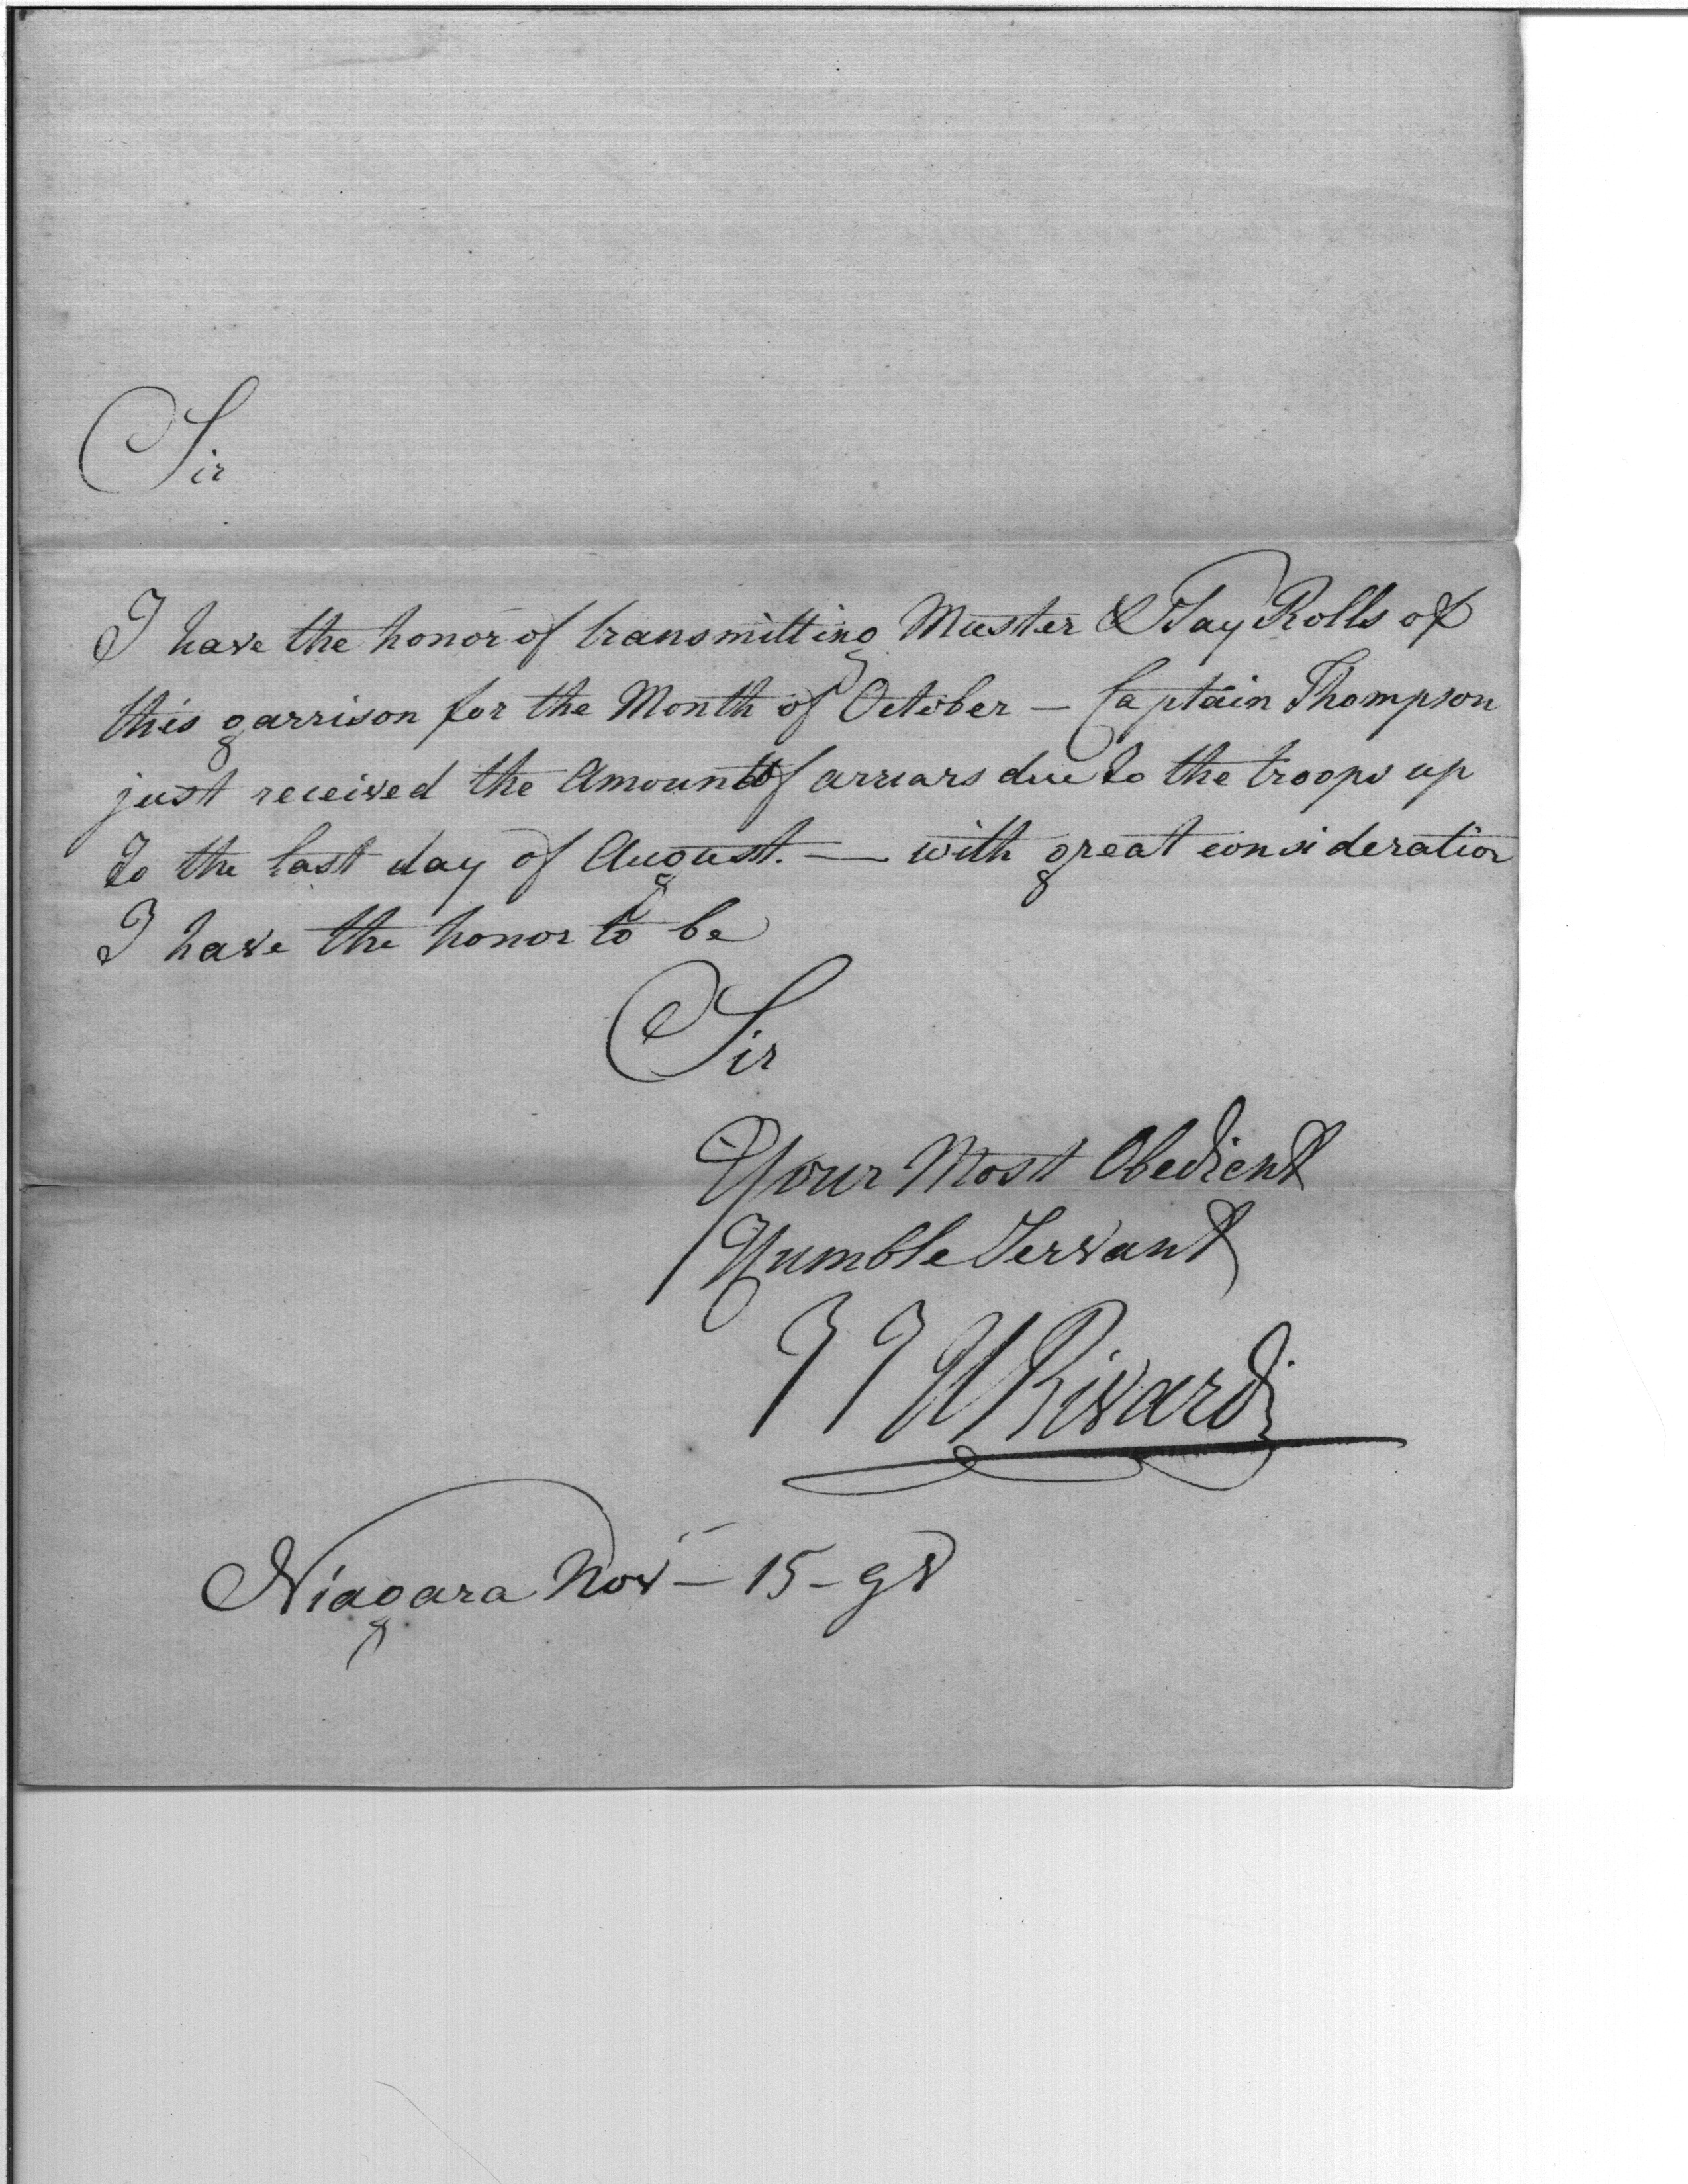 Sir
I have the honor of transmitting Muster & Pay Rolls of
this garrison for the Month of October — Captain Thompson
just received the Amount of arrears due to the troops up
to the last day of August. — with great consideration
I have the honor to be
Sir
Your Most Obedient
Humble Servant
J J U Rivardi
Niagara Nov — 15 — 98